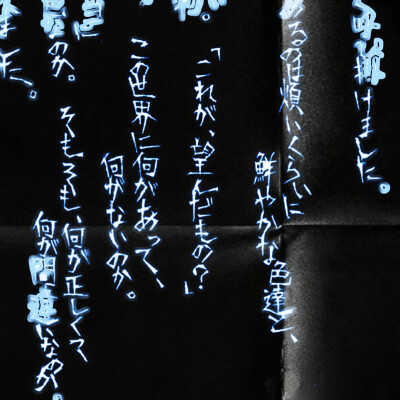 掛けました。
めるのは煩いくらいに
鮮やかな色達と、
「これが、望んだもの?」
この世界に何があって、
何がないのか。
のか。
そもそも、何が正しくて
何が間違いなのか。
ました。